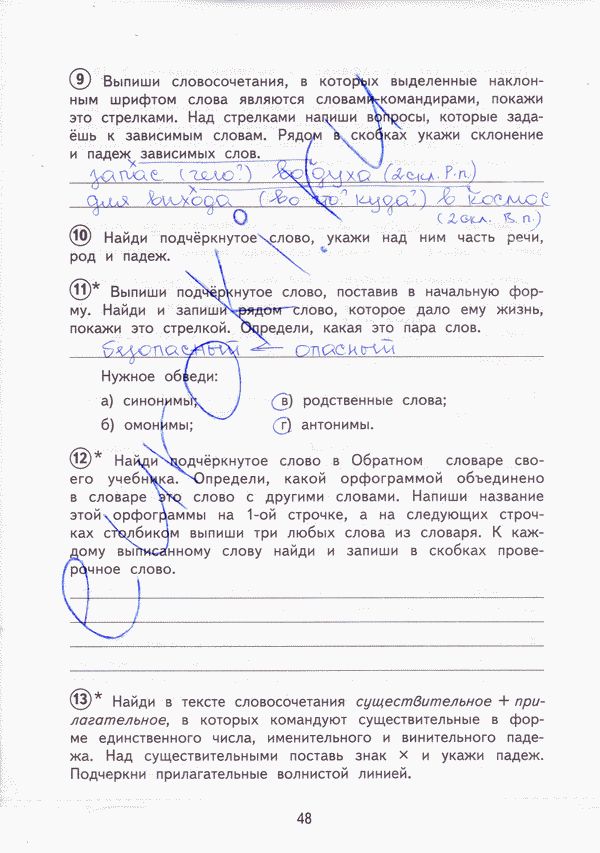 9 Выпиши словосочетания, в которых выделенные наклон-
ным шрифтом слова являются словами-командирами, покажи
это стрелками. Над стрелками напиши вопросы, которые зада-
ёшь к зависимым словам. Рядом в скобках укажи склонение
и падеж зависимых слов.
запас (чего?) воздуха (2 скл. Р.п.)
для выхода (во что? куда?) в космос
(2 скл. В.п.)
10 Найди подчёркнутое слово, укажи над ним часть речи,
род и падеж.
11* Выпиши подчёркнутое слово, поставив в начальную фор-
му. Найди и запиши рядом слово, которое дало ему жизнь,
покажи это стрелкой. Определи, какая это пара слов.
безопасный ← опасный
Нужное обведи:
а) синонимы; в) родственные слова;
б) омонимы; г) антонимы.
12* Найди подчёркнутое слово в Обратном словаре сво-
его учебника. Определи, какой орфограммой объединено
в словаре это слово с другими словами. Напиши название
этой орфограммы на 1-ой строчке, а на следующих строч-
ках столбиком выпиши три любых слова из словаря. К каж-
дому выписанному слову найди и запиши в скобках прове-
рочное слово.
13* Найди в тексте словосочетания существительное + при-
лагательное, в которых командуют существительные в фор-
ме единственного числа, именительного и винительного паде-
жа. Над существительными поставь знак × и укажи падеж.
Подчеркни прилагательные волнистой линией.
48